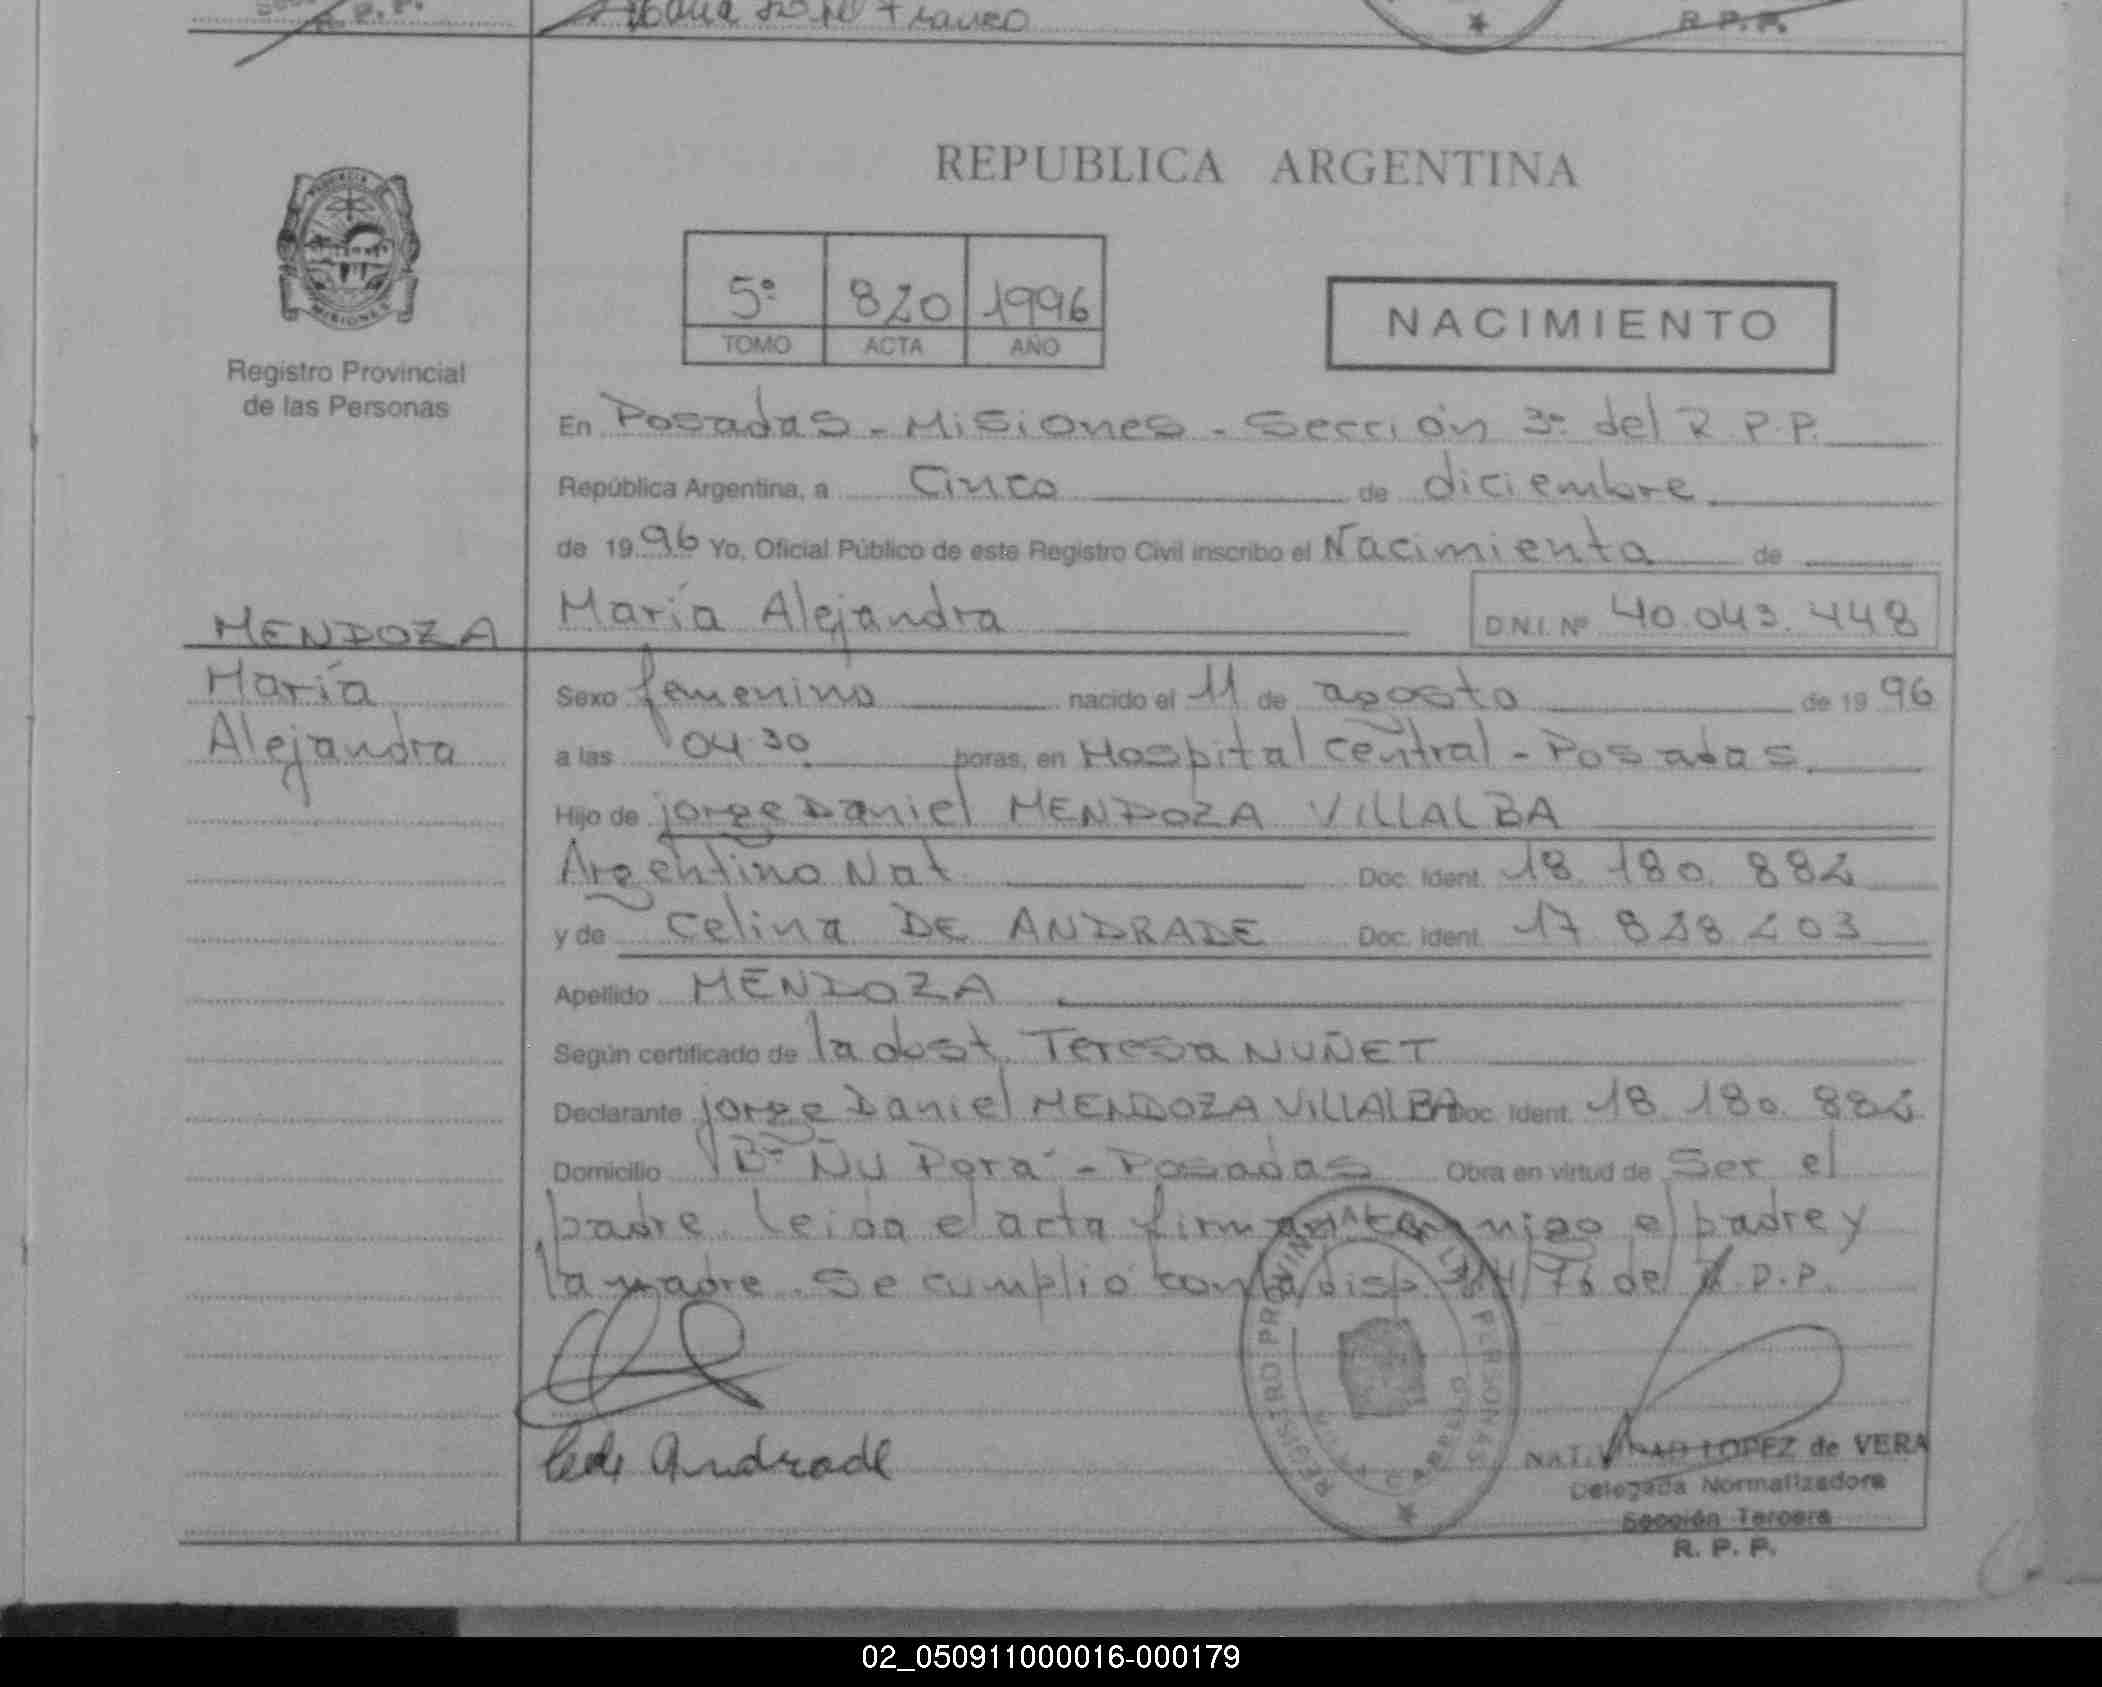 R. P. P.
REPUBLICA ARGENTINA
PROVINCIA DE MISIONES
5º 820 1996
TOMO ACTA AÑO
NACIMIENTO
Registro Provincial
de las Personas
En Posadas - Misiones - Sección 3º del R.P.P.
República Argentina, a Cinco de diciembre
de 1996 Yo, Oficial Público de este Registro Civil inscribo el Nacimiento de
MENDOZA
María Alejandra
D.N.I. Nº 40.043.448
María
Alejandra
Sexo femenino nacido el 11 de agosto de 1996
a las 04.30 horas, en Hospital Central - Posadas.
Hijo de Jorge Daniel MENDOZA VILLALBA
Argentino Nat Doc. Ident. 18.180.882
y de Celina DE ANDRADE Doc. Ident. 17 828 203
Apellido MENDOZA
Según certificado de la obst. Teresa NUÑET
Declarante Jorge Daniel MENDOZA VILLALBA Doc. Ident. 18.180.882
Domicilio Bº Ñu Porá - Posadas Obra en virtud de Ser el
padre. Leida el acta firman conmigo el padre y
la madre. Se cumplió con la disp. /76 del R.P.P.
Andrade
REGISTRO PROVINCIAL DE LAS PERSONAS
LOPEZ de VERA
Delegada Normalizadora
Sección Tercera
R. P. P.
02_050911000016-000179